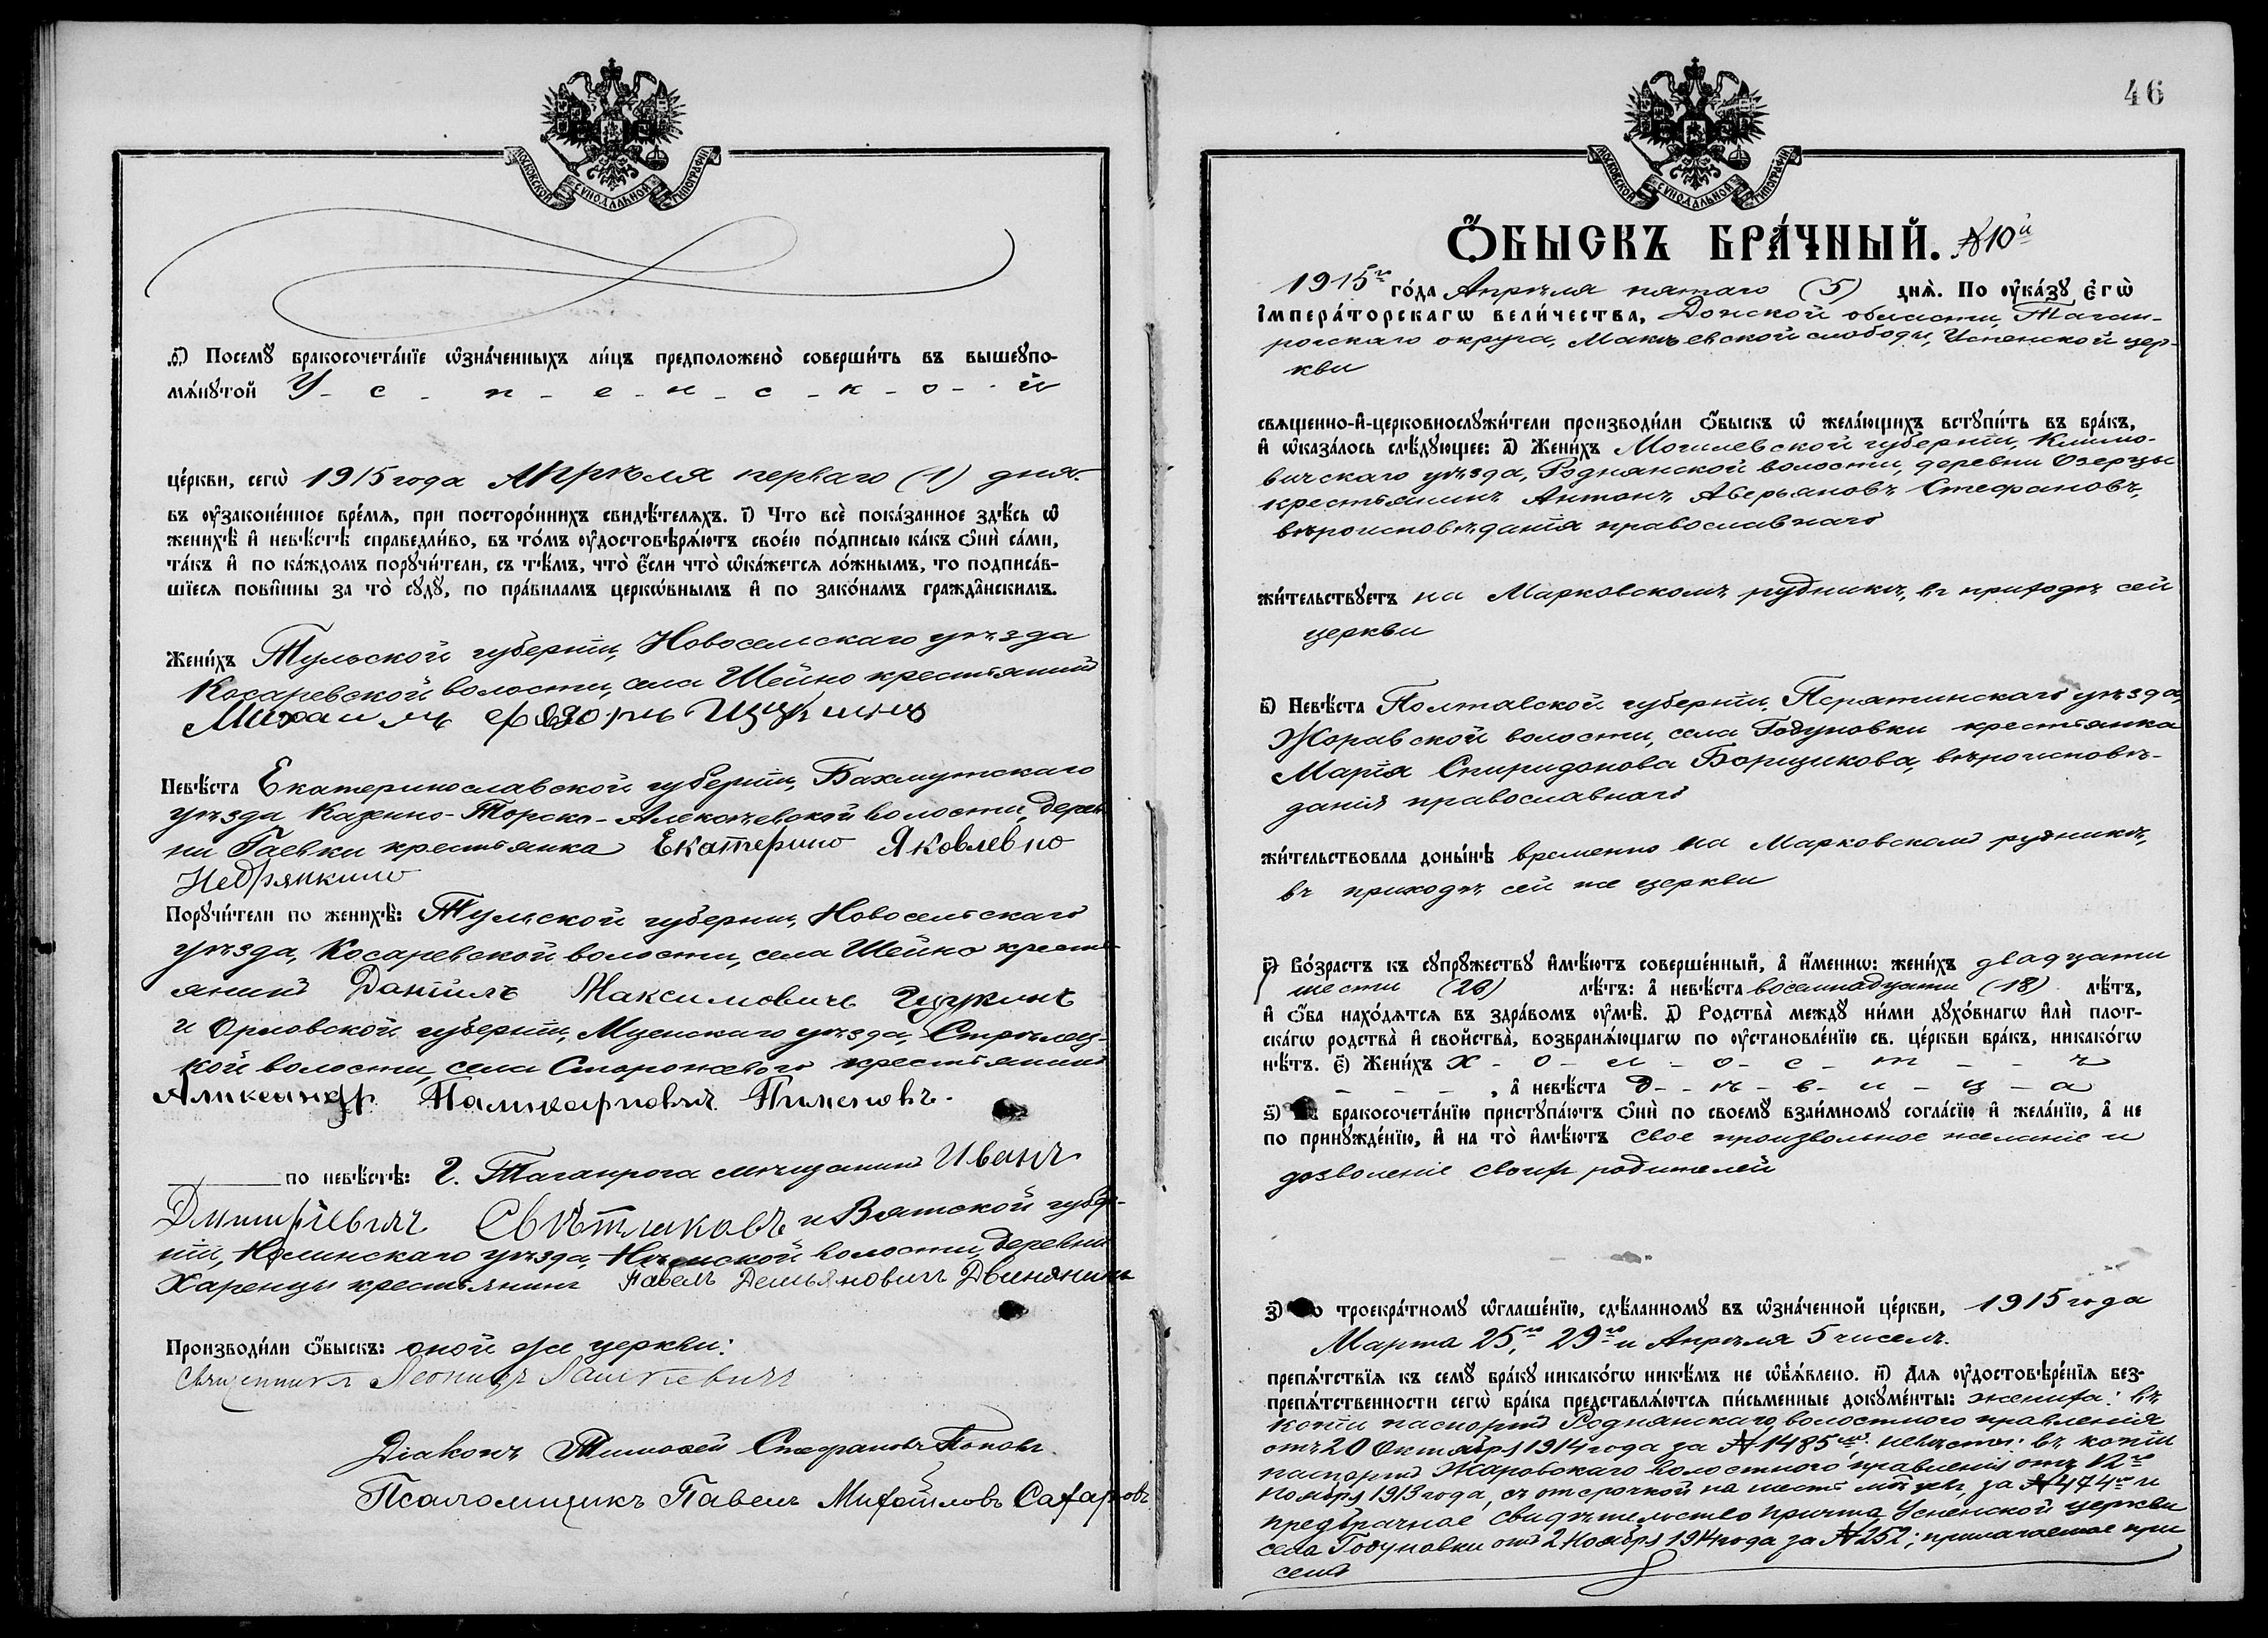 МОСКОВСКОЙ СѴНОДАЛЬНОЙ ТИПОГРАФІИ
ѳ҃) Посемꙋ̀ бракосочета́нїе ѡ҆зна́ченныхъ ли́цъ предположено̀ соверши́ть въ вышеꙋпо-
мѧ́нꙋтой У - с - п - е - н - с - к - о - й
це́ркви, сегѡ̀ 1915 года Апрѣля перваго (1) дня
въ ᲂу҆законе́нное вре́мѧ, при посторо́ннихъ свидѣ́телѧхъ. і҃) Что всѐ пока́занное здѣ́сь ѡ҆
женихѣ̀ и҆ невѣ́стѣ справедли́во, въ то́мъ ᲂу҆достовѣрѧ́ютъ свое́ю по́дписью ка́къ ѻ҆нѝ са́ми,
та́къ и҆ по ка́ждомъ порꙋчи́тели, съ тѣ́мъ, что̀ є҆́сли что̀ ѡ҆ка́жетсѧ ло́жнымъ, то подписа́в-
шїесѧ пови́нны за то̀ сꙋдꙋ̀, по пра́виламъ церко́внымъ и҆ по зако́намъ гражда́нскимъ.
Жени́хъ Тульской губерніи, Новосельскаго уѣзда
Косаревской волости, села Шейно крестьянинъ
Михаилъ
Невѣ́ста Екатеринославской губерніи, Бахмутскаго
уѣзда Казенно-Торско-Алексѣевской волости, дерев
ни Гаевки крестьянка Екатерино Яковлевно
Недрянкино
Порꙋчи́тели по женихѣ̀: Тульской губерніи, Новосельскаго
уѣзда, Косаревской волости, села Шейно кресть-
янинъ Даніилъ Максимовичъ
и Орловской губерніи, Мценскаго уѣзда, Стрѣлец-
кой волости, села Сторожевого крестьянинъ
Александр Паликарповичъ Пименовъ.
по невѣ́стѣ: г. Таганрога мѣщанинъ Иванъ
Дмитріевичъ Свѣтликовъ и Вятской губер-
ніи, Нолинскаго уѣзда, волости, деревни
Харенцы крестьянинъ Павелъ Демьяновичъ Двинянинъ
Производи́ли ѻ҆́быскъ: оной же церкви:
Священникъ Леонидъ
Діаконъ Тимофей Стефановъ Поповъ.
Псаломщикъ Павелъ Михайловъ Сахаровъ
46
МОСКОВСКОЙ СѴНОДАЛЬНОЙ ТИПОГРАФІИ
Ѻ҆́БЫСКЪ БРА́ЧНЫЙ. №10й
1915го го́да Апрѣля пятаго (5) днѧ̀. По ᲂу҆ка́зꙋ є҆гѡ̀
і҆мпера́торскагѡ вели́чества, Донской области, Таган-
рогскаго округа, Макѣевской слободы, Успенской цер-
кви
свѧщенно-и҆-церковнослꙋжи́тели производи́ли ѻ҆́быскъ ѡ҆ жела́ющихъ встꙋпи́ть въ бра́къ,
и҆ ѡ҆каза́лось слѣ́дꙋющее: а҃) Жени́хъ Могилевской губерніи, Климо-
вичскаго уѣзда, Роднянской волости, деревни Озерцы
крестьянинъ Антонъ Аверьяновъ Стефановъ,
вѣроисповѣданія православнаго
жи́тельствꙋетъ на Марковскомъ рудникѣ, въ приходѣ сей
церкви
в҃) Невѣ́ста Полтавской губерніи, Пирятинскаго уѣзда,
Жоравской волости, села Годуновки крестьянка
Марія Спиридонова Борщикова, вѣроисповѣ-
данія православнаго
жи́тельствовала доны́нѣ временно на Марковскомъ рудникѣ,
въ приходѣ сей же церкви
г҃) Во́зрастъ къ сꙋпрꙋ́жествꙋ и҆мѣ́ютъ соверше́нный, а҆ и҆́меннѡ: жени́хъ двадцати
шести (26) лѣ́тъ: а҆ невѣ́ста восемнадцати (18) лѣ́тъ,
и҆ ѻ҆́ба нахо́дѧтсѧ въ здра́вомъ ᲂу҆мѣ̀. д҃) Родства̀ междꙋ̀ ни́ми дꙋхо́внагѡ и҆лѝ плот-
ска́гѡ родства̀ и҆ сво́йства̀, возбранѧ́ющагѡ по ᲂу҆становле́нїю св. це́ркви бра́къ, никако́гѡ
нѣ́тъ. є҃) Жени́хъ х - о - л - о - с - т - - ъ
- - - , а҆ невѣ́ста д - ѣ - в - и - ц - а
ѕ҃) бракосочета́нїю пристꙋпа́ютъ ѻ҆нѝ по своемꙋ̀ взаи́мномꙋ согла́сїю и҆ жела́нїю, а҆ не
по принꙋжде́нїю, и҆ на то̀ и҆мѣ́ютъ свое произвольное желаніе и
дозволеніе своихъ родителей
з҃) По троекра́тномꙋ ѡ҆глаше́нїю, сдѣ́ланномꙋ въ ѡ҆зна́ченной це́ркви, 1915 года
Марта 25го, 29го и Апрѣля 5 чиселъ.
препѧ́тствїѧ къ семꙋ̀ бра́кꙋ никако́гѡ никѣ́мъ не ѡ҆б̾ѧ́влено. и҃) Длѧ ᲂу҆достовѣре́нїѧ без-
препѧ́тственности сегѡ̀ бра́ка представлѧ́ютсѧ пи́сьменные докꙋме́нты: жениха: въ
копіи паспортъ Роднянскаго волостного правленія
отъ 20 Октября 1914 года за №1485мъ; невѣсты: въ копіи
паспортъ Жаровскаго волостного правленія отъ 12го
Ноября 1913 года, съ отсрочкой на шесть мѣсяц., за №474мъ и
предбрачное свидѣтельство причта Успенской церкви
села Годуновки отъ 2 Ноября 1914 года за №252; прилагаемое при
семъ